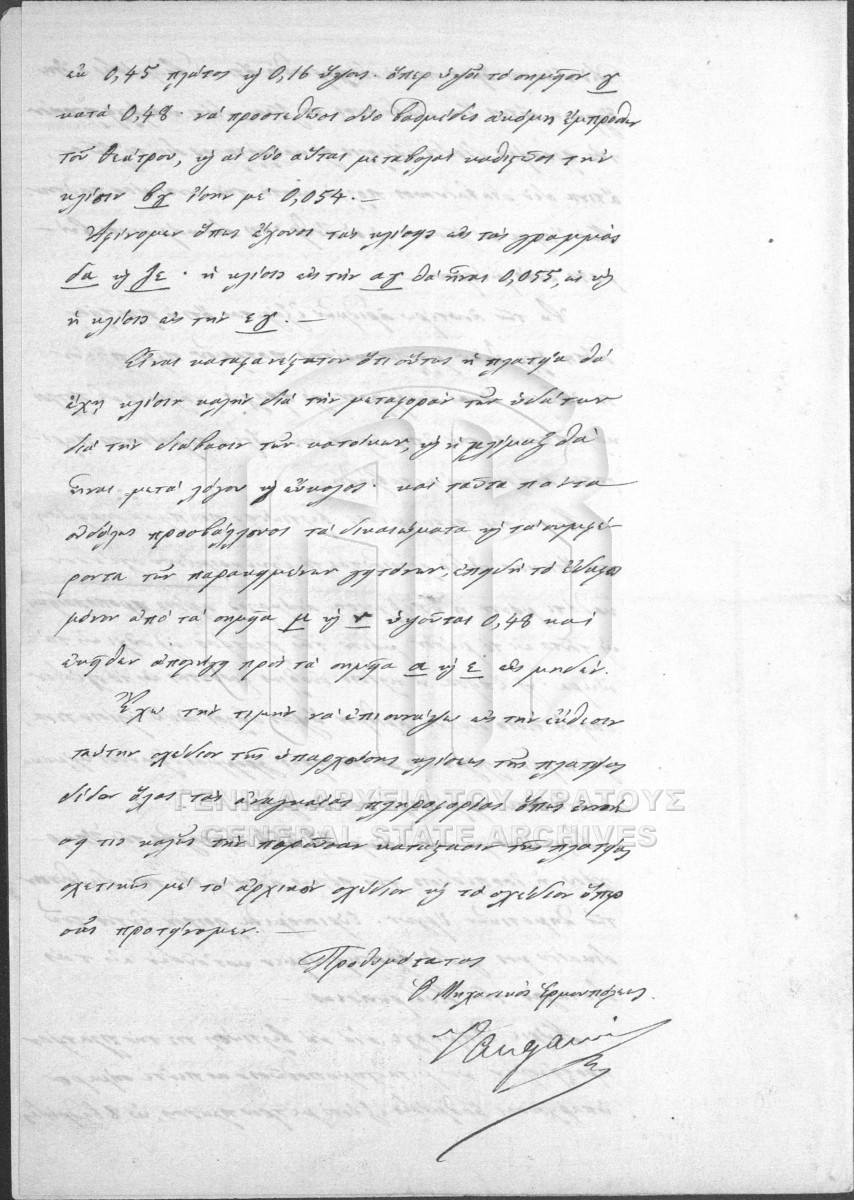 ἐκ 0,45 πλάτος κ 0,16 ὕψος· ὅπερ ὑψοῖ τὸ σημεῖον γ
κατὰ 0,48· νὰ προστεθῶσι δύο βαθμίδες ἀκόμη ἔμπροσθεν
τοῦ θεάτρου, κ αἱ δύο αὗται μεταβολαὶ καθιστῶσι τὴν
κλίσιν βγ ἴσην μὲ 0,054. —
Ἀφίνομεν ὅπως ἔχουσι τὰς κλίσεις εἰς τὰς γραμμὰς
δα κ ζε· ἡ κλίσις εἰς τὴν αγ θὰ ἦναι 0,055, ὡς κ
ἡ κλίσις εἰς τὴν εγ. —
Εἶναι καταφανέστατον ὅτι οὕτως ἡ πλατεῖα θὰ
ἔχῃ κλίσιν καλὴν διὰ τὴν μεταφορὰν τῶν ὑδάτων
διὰ τὴν διάβασιν τῶν κατοίκων, κ ἡ κλίμαξ θὰ
ἦναι μετὰ λόγου κ εὔκολος· καὶ ταῦτα πάντα
οὐδόλως προσβάλλουσι τὰ δικαιώματα κ τὰ συμφέ-
ροντα τῶν παρακειμένων γειτόνων, ἐπειδὴ τὸ ἔδαφος
μόνον ἀπὸ τὰ σημεῖα μ κ ν ὑψοῦται 0,48 καὶ
ἐκεῖθεν ἀπολήγει πρὸς τὰ σημεῖα α κ ε εἰς μηδέν.
Ἔχω τὴν τιμὴν νὰ ἐπισυνάψω εἰς τὴν ἔκθεσιν
ταύτην σχέδιον τῆς ὑπαρχούσης κλίσεως τῆς πλατείας
δίδον ὅλας τὰς ἀναγκαίας πληροφορίας ὅπως ἐννοή-
σῃ τις καλῶς τὴν παροῦσαν κατάστασιν τῆς πλατείας
σχετικῶς μὲ τὸ ἀρχικὸν σχέδιον κ τὸ σχέδιον ὅπερ
σᾶς προτείνομεν. —
Προθυμότατος
Ὁ Μηχανικὸς Ἑρμουπόλεως
ΓΕΝΙΚΑ ΑΡΧΕΙΑ ΤΟΥ ΚΡΑΤΟΥΣ
GENERAL STATE ARCHIVES